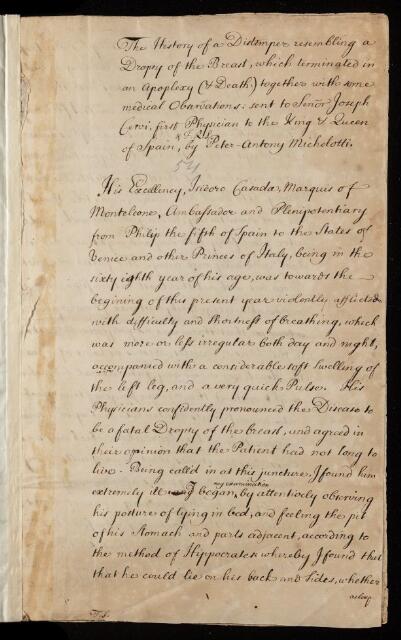 The History of a Distemper resembling a
Dropsy of the Breast, which terminated in
an Apoplexy (& Death) together with some
medical Observations: sent to Señor Joseph
Cervi, first Physician to the King & Queen
& F.R.S.
of Spain, by Peter-Antony Michelotti.
54
His Excellency, Isidoro Casada, Marquis of
Monteleone, Ambassador and Plenipotentiary
from Philip the fifth of Spain to the States of
Venice and other Princes of Italy, being in the
sixty eighth year of his age, was towards the
begining of this present year violently afflicted
with difficulty and shortness of breathing, which
was more or less irregular both day and night,
accompanied with a considerable soft swelling of
the left leg, and a very quick Pulse. His
Physicians confidently pronounced the Disease to
be a fatal Dropsy of the breast, and agreed in
their opinion that the Patient had not long to
live - Being call'd in at this juncture, I found him
my examination
extremely ill I began, by attentively observing
his posture of lying in bed, and feeling the pit
of his Stomach and parts adjacent, according to
the method of Hyppocrates whereby I found that
that he could lie on his back and sides, whether
asleep